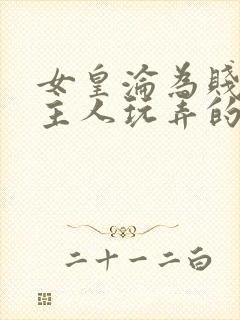 女皇淪為賤
主人玩弄的
二十一二白